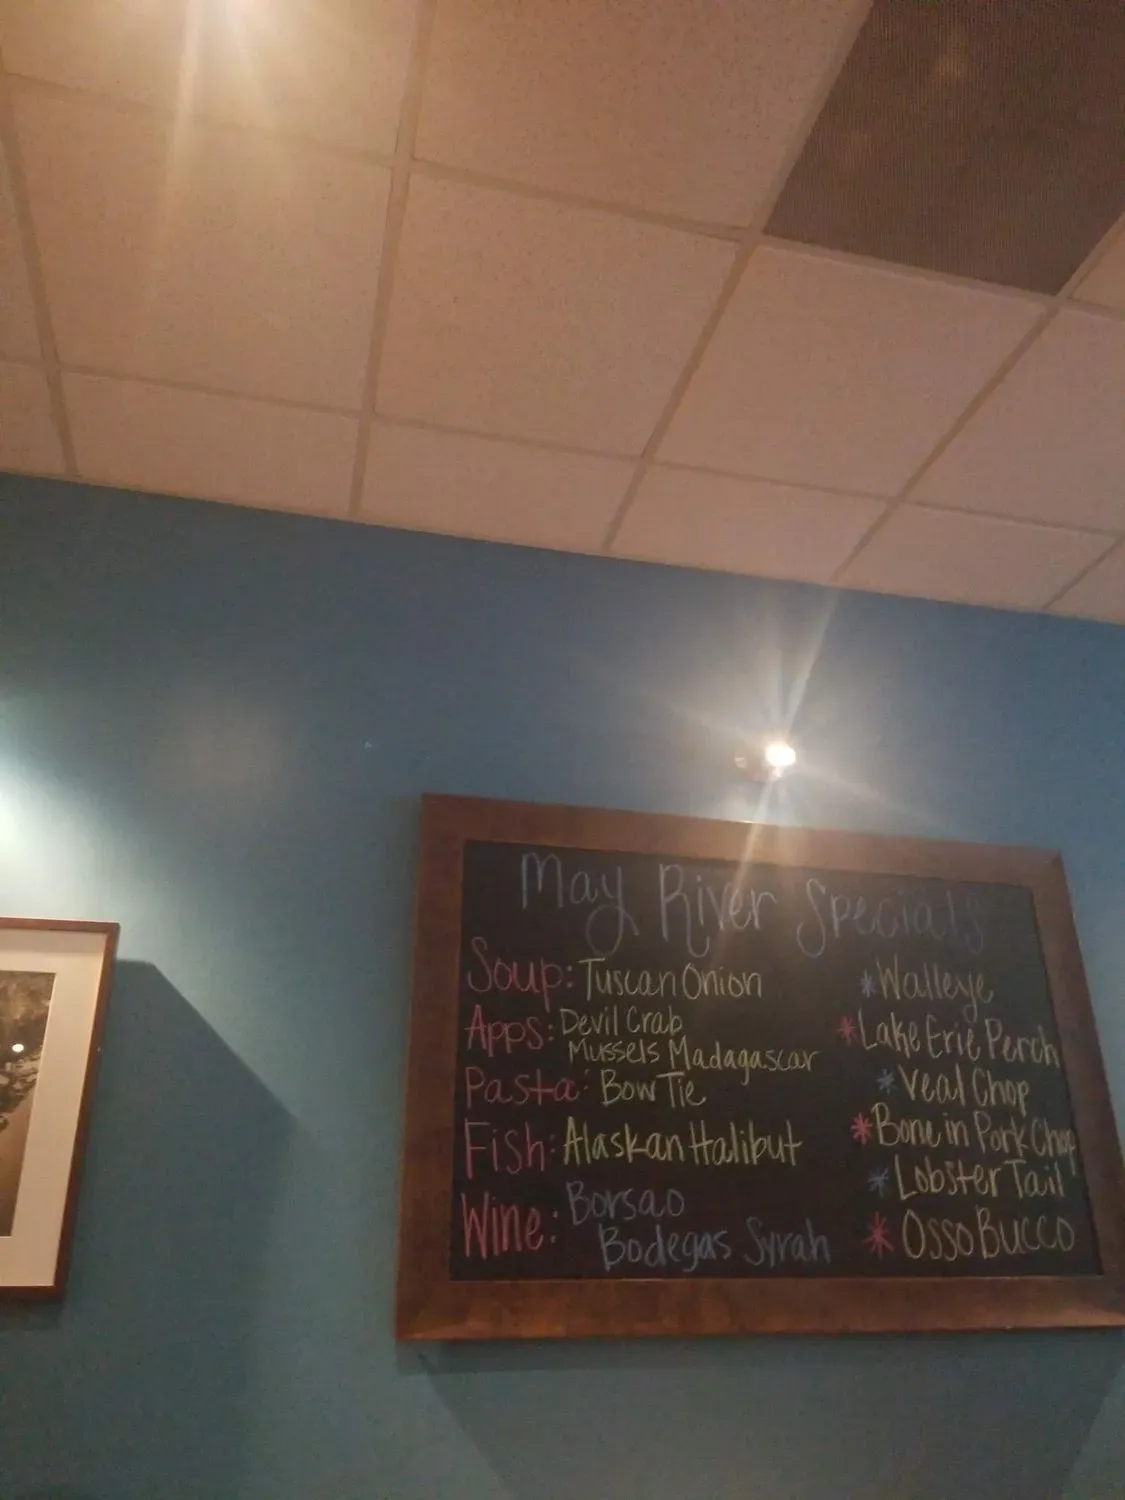 May River Specials
Soup: Tuscan Onion
Apps: Devil Crab
Mussels Madagascar
Pasta: Bow Tie
Fish: Alaskan Halibut
Wine: Borsao
Bodegas Syrah
*Walleye
*Lake Erie Perch
*Veal Chop
*Bone in Pork Chop
*Lobster Tail
*Osso Bucco